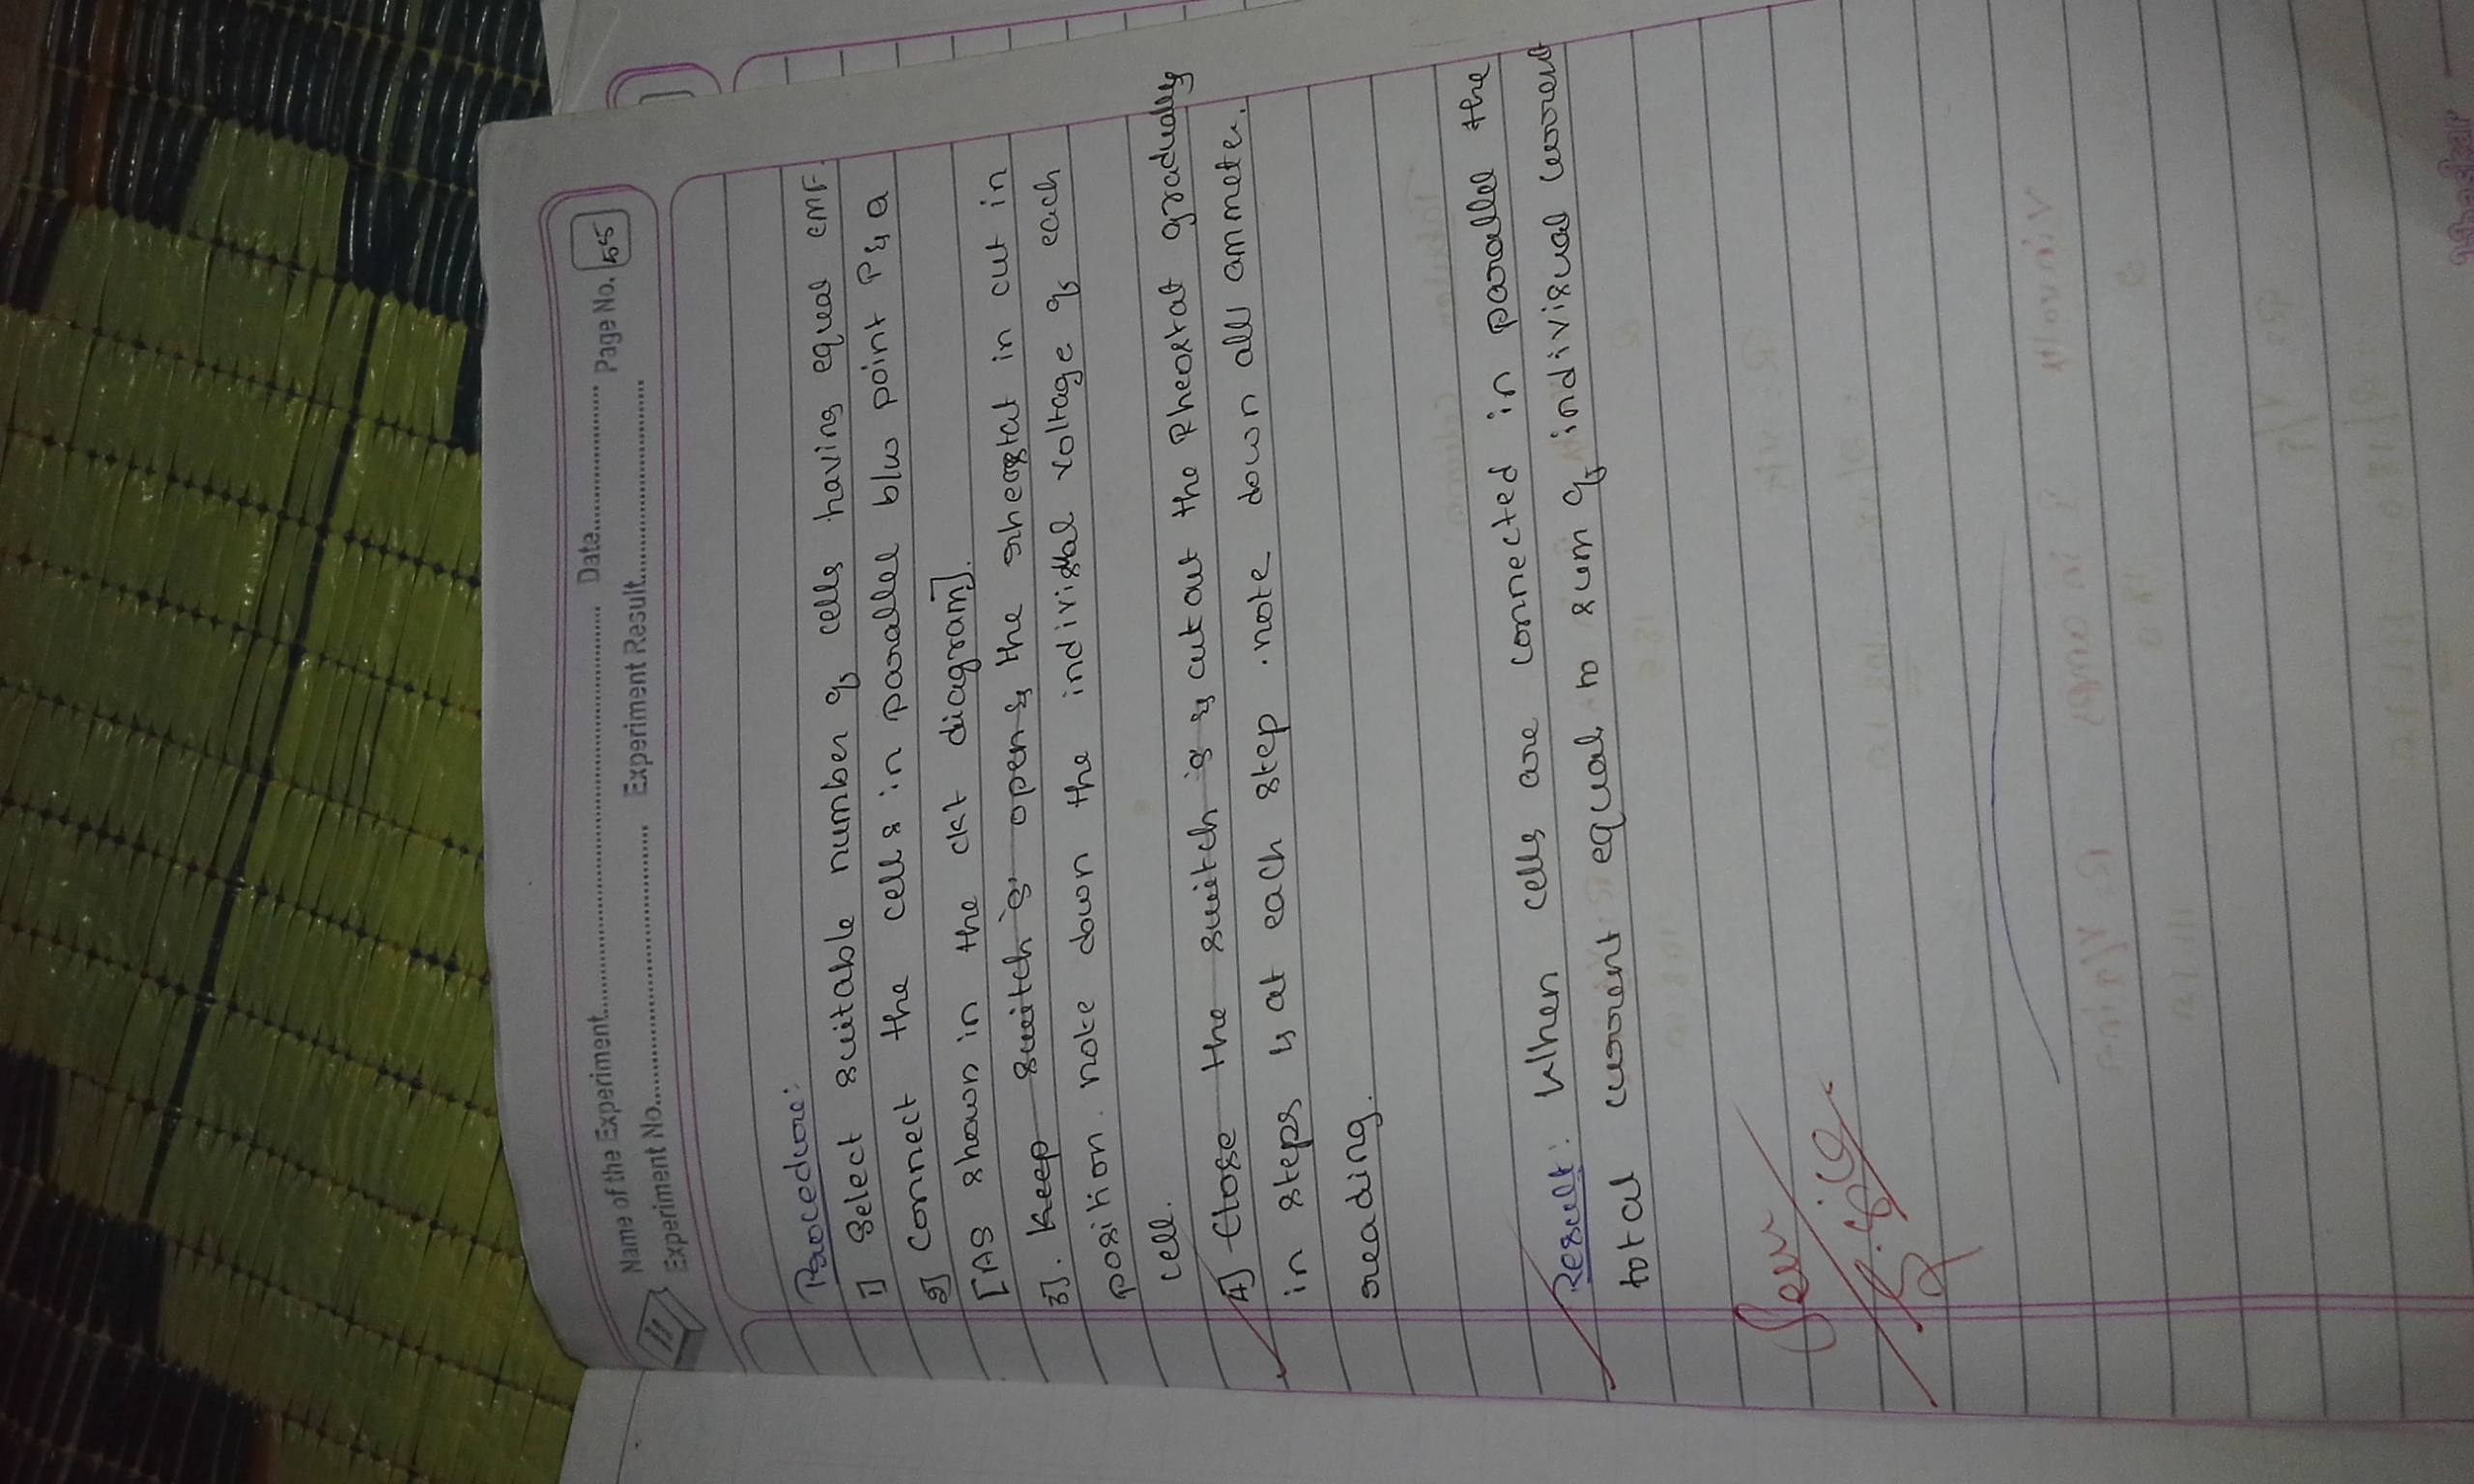 Name of the Experiment............ Date............ Page No. 55
Experiment No............ Experiment Result............
Procedure:
1] Select suitable number of cells having equal EMF.
2] Connect the cells in parallel b/w point P & Q
[AS shown in the ckt diagram].
3]. Keep switch 's' open & the rheostat in cut in
position. note down the individual voltage of each
cell.
4] Close the switch 's' & cut out the Rheostat gradually
in steps & at each step . note down all ammeter.
reading.
Result: When cells are connected in parallel the
total current equal to sum of indivisual current
Seen